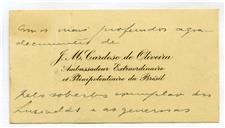 com os mais profundos agra-
decimentos de
J. M. Cardoso de Oliveira
Ambassadeur Extraordinaire
et Plénipotentiaire du Brésil
pelo soberbo exemplar dos
Lusiadas e as generosas